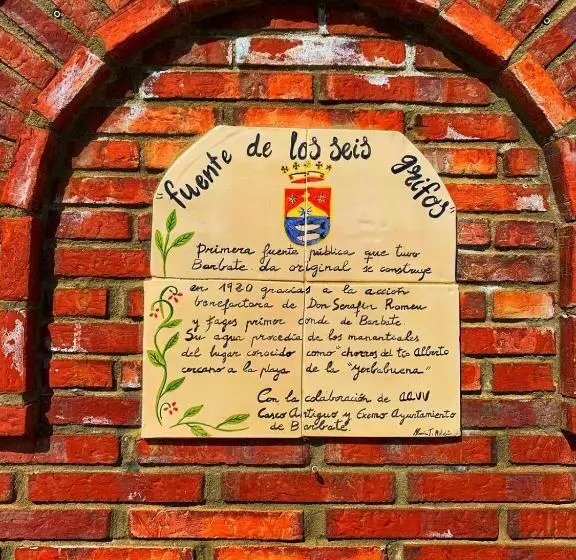 "fuente de los seis grifos"
Primera fuente pública que tuvo
Barbate. La original se construye
en 1920 gracias a la acción
benefactora de Don Serafín Romeu
y Fages primer conde de Barbate
Su agua procedía de los manantiales
del lugar conocido como "chorros del tío Alberto
cercano a la playa de la "Yerbabuena"
Con la colaboración de AAVV
Casco Antiguo y Excmo Ayuntamiento
de Barbate.